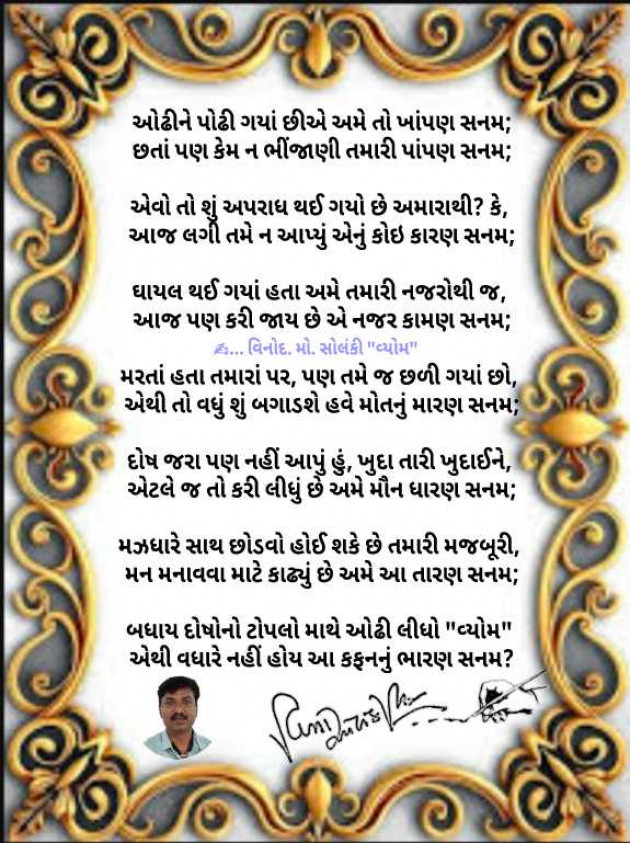 ઓઢીને પોઢી ગયાં છીએ અમે તો ખાંપણ સનમ;
છતાં પણ કેમ ન ભીંજાણી તમારી પાંપણ સનમ;
એવો તો શું અપરાધ થઈ ગયો છે અમારાથી? કે,
આજ લગી તમે ન આપ્યું એનું કોઇ કારણ સનમ;
ઘાયલ થઈ ગયાં હતા અમે તમારી નજરોથી જ,
આજ પણ કરી જાય છે એ નજર કામણ સનમ;
✍... વિનોદ. મો. સોલંકી "વ્યોમ"
મરતાં હતા તમારાં પર, પણ તમે જ છળી ગયાં છો,
એથી તો વધું શું બગાડશે હવે મોતનું મારણ સનમ;
દોષ જરા પણ નહીં આપું હું, ખુદા તારી ખુદાઈને,
એટલે જ તો કરી લીધું છે અમે મૌન ધારણ સનમ;
મઝધારે સાથ છોડવો હોઈ શકે છે તમારી મજબૂરી,
મન મનાવવા માટે કાઢ્યું છે અમે આ તારણ સનમ;
બધાય દોષોનો ટોપલો માથે ઓઢી લીધો "વ્યોમ"
એથી વધારે નહીં હોય આ કફનનું ભારણ સનમ?